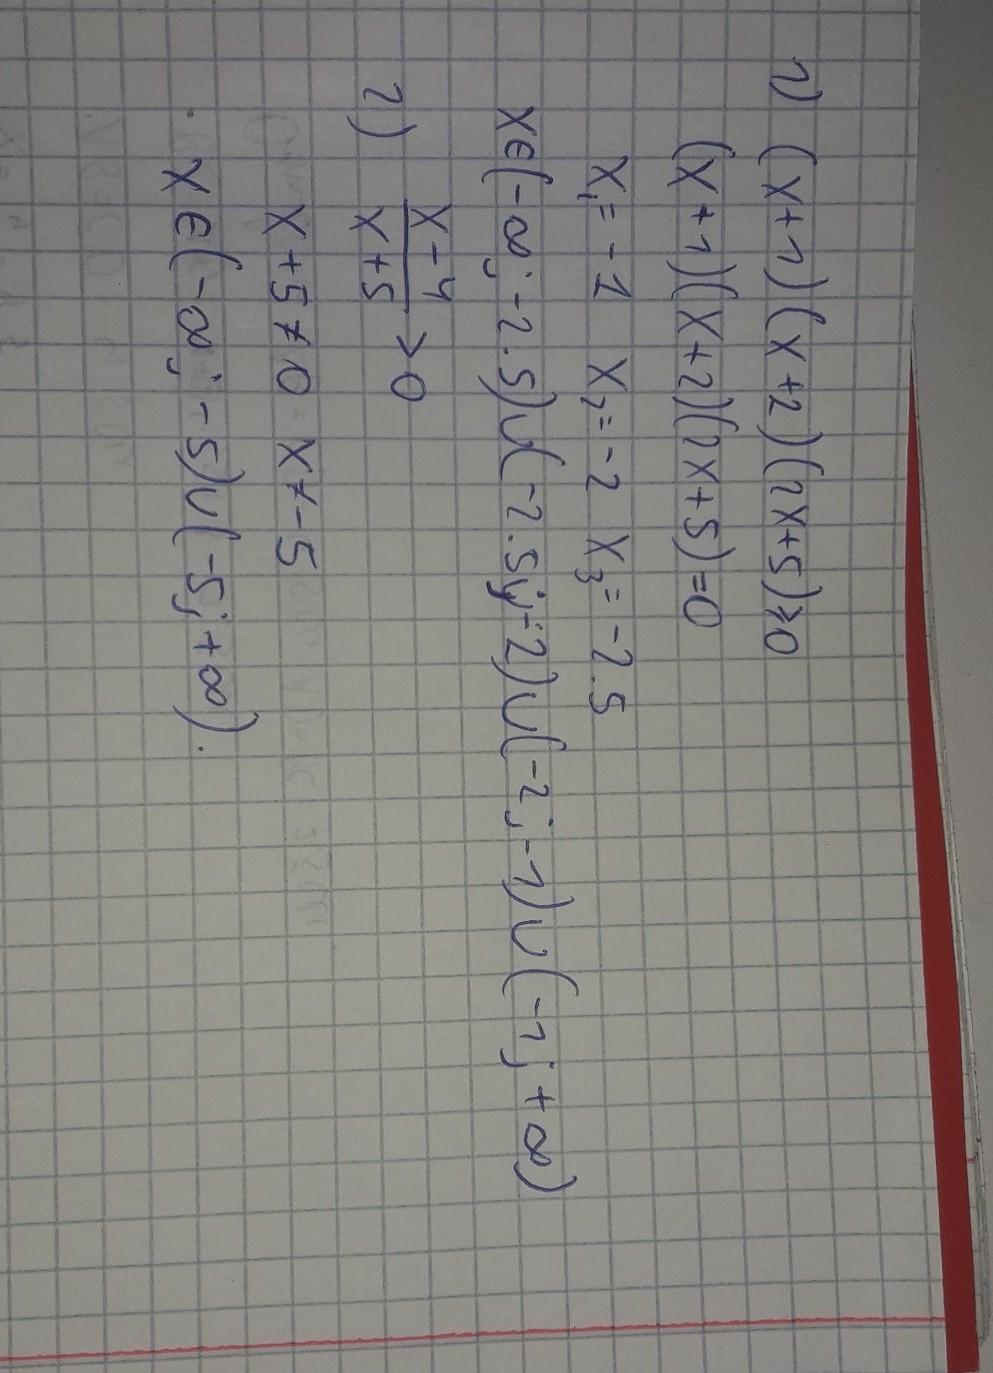 1) (x+1)(x+2)(2x+5)≥0
(x+1)(x+2)(2x+5)=0
x₁=-1 x₂=-2 x₃=-2.5
x∈(-∞;-2.5)∪(-2.5;-2)∪(-2;-1)∪(-1;+∞)
2) x-4/x+5 >0
x+5≠0 x≠-5
x∈(-∞;-5)∪(-5;+∞).